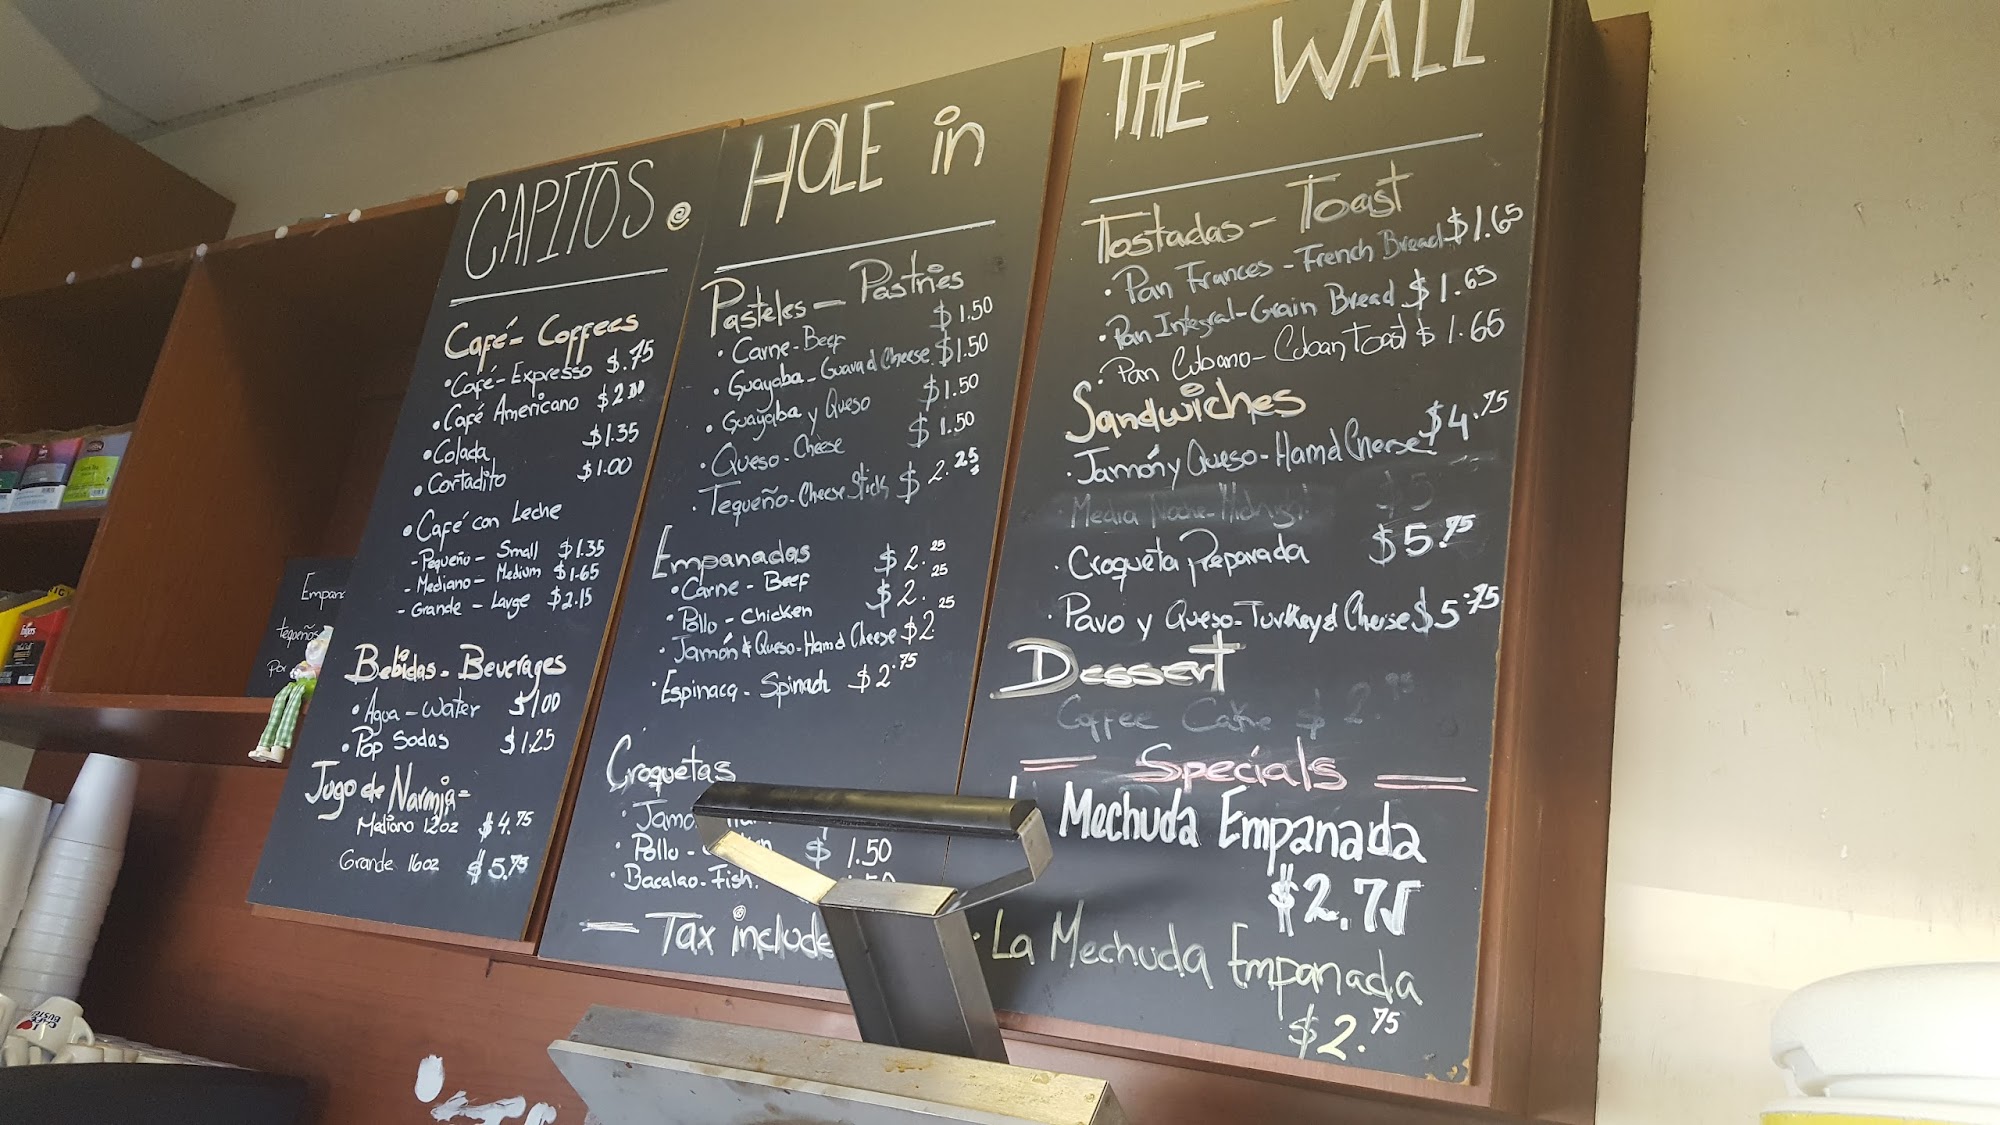 CAPITOS.
Café - Coffees
• Café - Expresso $.75
• Café Americano $2.00
• Colada $1.35
• Cortadito $1.00
• Café con Leche
- Pequeño - Small $1.35
- Mediano - Medium $1.65
- Grande - Large $2.15
Bebidas - Beverages
• Agua - Water $1.00
• Pop Sodas $1.25
Jugo de Naranja =
Mediano 12oz $4.75
Grande 16oz $5.75
HOLE in
Pasteles - Pastries
• Carne - Beef $1.50
• Guayaba - Guava d Cheese $1.50
• Guayaba y Queso $1.50
• Queso - Cheese $1.50
• Tequeño - Cheese Stick $2.25
Empanadas $2.25
• Carne - Beef $2.25
• Pollo - Chicken
• Jamón & Queso - Ham d Cheese $2.25
• Espinaca - Spinach $2.75
Croquetas
• Pollo - $1.50
• Bacalao - Fish
— Tax
THE WALL
Tostadas - Toast
• Pan Frances - French Bread $1.65
• Pan Integral - Grain Bread $1.65
• Pan Cubano - Cuban Toast $1.65
Sandwiches
• Jamón y Queso - Ham d Cheese $4.75
Media Noche - Midnight $5
• Croqueta Preparada $5.75
• Pavo y Queso - Turkey d Cheese $5.75
Dessert
Coffee Cake $2.95
= Specials =
Mechuda Empanada
$2.75
• La Mechuda Empanada
$2.75
tequeños
Por
Folgers